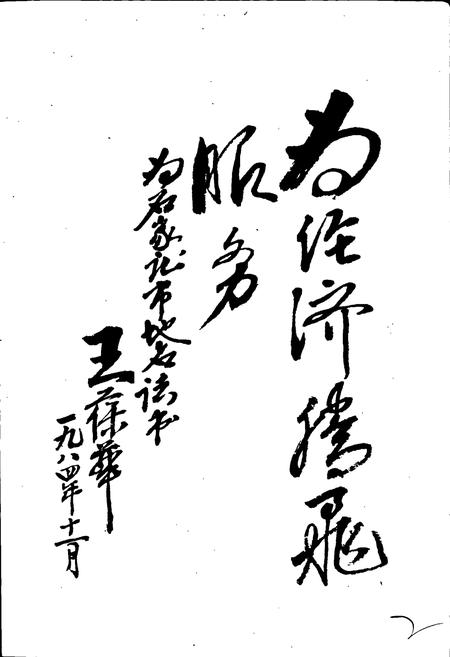 为经济腾飞
服务
为石家庄市地名志书
王葆华
一九八四年十一月
2